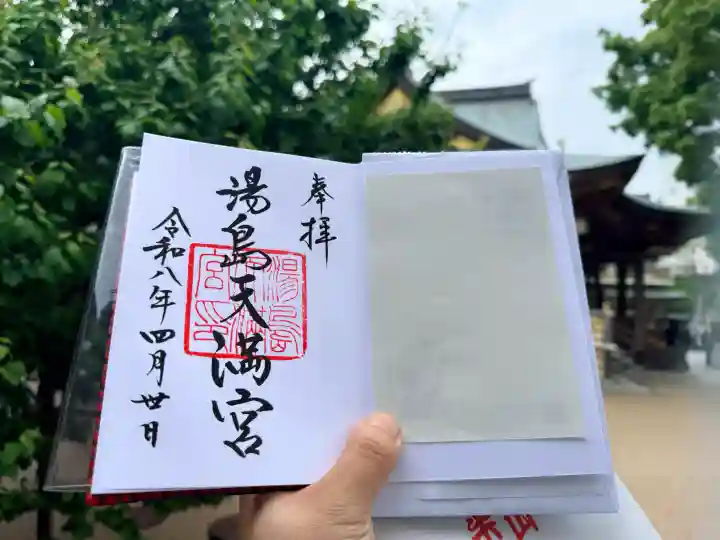 奉拝
湯島天満宮
令和八年四月丗日